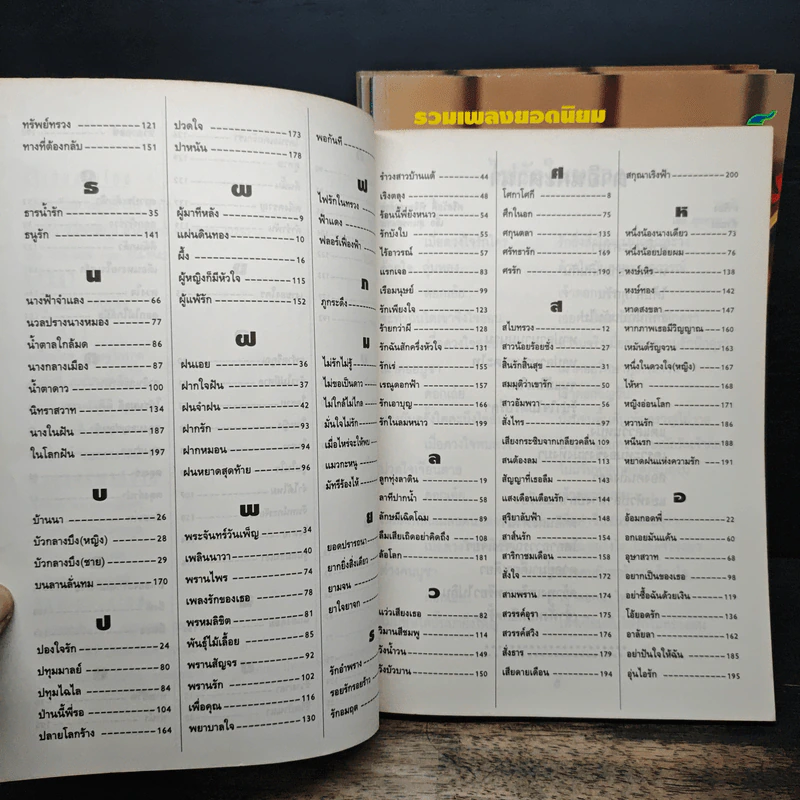 รวมเพลงยอดนิยม
ทรัพย์ทรวง 121
ทางที่ต้องกลับ 151
ธ
ธารน้ำรัก 35
ธนูรัก 141
น
นางฟ้าจำแลง 66
นวลปรางนางหมอง 77
น้ำตาลใกล้มด 86
นางกลางเมือง 87
น้ำตาดาว 100
นิทราสวาท 134
นางในฝัน 187
ในโลกฝัน 197
บ
บ้านนา 26
บัวกลางบึง(หญิง) 28
บัวกลางบึง(ชาย) 29
บนลานลั่นทม 170
ป
ปองใจรัก 24
ปทุมมาลย์ 80
ปทุมไฉไล 84
ป่านนี้พี่รอ 104
ปลายโลกร้าง 164
ปวดใจ 173
ปาหนัน 178
ผ
ผู้มาทีหลัง 9
แผ่นดินทอง 10
ผึ้ง 16
ผู้หญิงก็มีหัวใจ 115
ผู้แพ้รัก 152
ฝ
ฝนเอย 36
ฝากใจฝัน 37
ฝนจ๋าฝน 42
ฝากรัก 93
ฝากหมอน 94
ฝนหยาดสุดท้าย 96
พ
พระจันทร์วันเพ็ญ 34
เพลินนาวา 40
พรานไพร 74
เพลงรักของเธอ 78
พรหมลิขิต 81
พันธุ์ไม้เลื้อย 85
พรานสัญจร 92
พรานรัก 102
เพื่อคุณ 116
พยาบาลใจ 130
พอกันที
ฟ
ไฟรักในทรวง
ฟ้าแดง
ฟลอร์เฟื่องฟ้า
ภ
ภูกระดึง
ม
ไม่รักไม่รู้
ไม่ขอเป็นดาว
ไม่ใกล้ไม่ไกล
มั่นใจไม่รัก
เมื่อไหร่จะให้พบ
แมวกะหนู
มัทรีร้องไห้
ย
ยอดปรารถนา
ยากยิ่งสิ่งเดียว
ยามจน
ยาใจยาจก
ร
รักอำพราง
รอยรักรอยร้าว
รักอมฤต
รำวงสาวบ้านแต้ 44
เริงตลุง 48
ร้อนนี้พี่ยังหนาว 54
รักบังใบ 54
ไร้อาวรณ์ 57
แรกเจอ 83
เรือมนุษย์ 99
รักเพียงใจ 123
ร้ายกว่าผี 128
รักฉันสักครึ่งหัวใจ 131
รักเร่ 155
เรณูดอกฟ้า 157
รักเอาบุญ 166
รักในลมหนาว 199
ล
ลูกทุ่งลาดิน 19
ลาทีปากน้ำ 58
ลักษมีเฉิดโฉม 89
ลืมเสียเถิดอย่าคิดถึง 108
ล้อโลก 144
ว
แว่วเสียงเธอ 82
วิมานสีชมพู 114
วังน้ำวน 149
วังบัวบาน 150
ศ
โศกาโศกี 8
ศึกในอก 75
ศกุนตลา 135
ศรัทธารัก 169
ศรรัก 190
ส
สไบทรวง 12
สาวน้อยร้อยชั่ง 27
สิ้นรักสิ้นสุข 31
สมมุติว่าเขารัก 50
สาวอัมพวา 56
สั่งไทร 97
เสียงกระซิบจากเกลียวคลื่น 109
สนต้องลม 113
สัญญาที่เธอลืม 143
แสงเดือนเตือนรัก 145
สุริยาลับฟ้า 148
สาส์นรัก 154
สาริกาชมเดือน 158
สั่งใจ 172
สามพราน 174
สวรรค์อุรา 175
สวรรค์สวิง 176
สั่งธาร 179
เสียดายเดือน 194
สกุณาเริงฟ้า 200
ห
หนึ่งน้องนางเดียว 73
หนึ่งน้อยปอยผม 76
หงษ์เหิร 138
หงษ์ทอง 142
หาดสงขลา 147
หากภาพเธอมีวิญญาณ 160
เหมันต์รัญจวน 163
หนึ่งในดวงใจ(หญิง) 165
ไห้หา 168
หญิงอ่อนโลก 171
หวานรัก 186
หนีนรก 188
หยาดฝนแห่งความรัก 191
อ
อ้อมกอดพี่ 22
อกเอยมันแค้น 60
อุษาสวาท 68
อยากเป็นของเธอ 98
อย่าซื้อฉันด้วยเงิน 119
โอ้ยอดรัก 136
อาลัยลา 162
อย่าปันใจให้ฉัน 185
อุ่นไอรัก 195